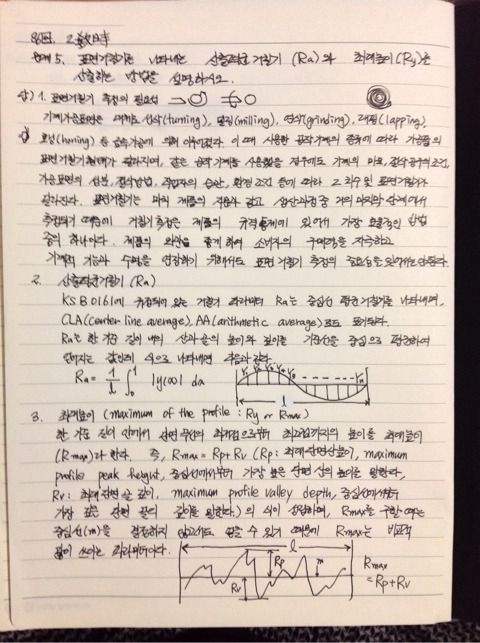 문제 5. 표면거칠기를 나타내는 산술평균거칠기 (Ra)와 최대높이(Ry)를
산출하는 방법을 설명하시오.
답) 1. 표면거칠기 측정의 필요성
기계가공표면은 대체로 선삭(turning), 밀링(milling), 연삭(grinding), 래핑(lapping),
호닝(honing) 등 금속가공에 의해 이루어진다. 이 때 사용한 공작기계의 종류에 따라 가공물의
표면거칠기 형태가 달라지며, 같은 공작기계를 사용했을 경우에도 기계의 마모, 절삭공구의 조건,
가공표면의 성분, 절삭방법, 작업자의 습관, 환경 조건 등에 따라 그 치수 및 표면거칠기가
달라진다. 표면거칠기는 마치 제품의 지문과 같고 생산과정 중 거의 마지막 단계에서
측정되기 때문에 거칠기 측정은 제품의 규격 통제에 있어서 가장 효율적인 방법
중의 하나이다. 제품의 외관을 좋게 하여 소비자의 구매력을 자극하고
기계적 기능과 수명을 연장하기 위해서도 표면 거칠기 측정의 중요성을
2. 산술평균거칠기 (Ra)
KS B 0161에 규정되어 있는 거칠기 파라미터 Ra는 중심선 평균거칠기를 나타내며,
CLA(center line average), AA(arithmetic average)로도 표기된다.
Ra는 한 기준 길이 내의 산과 골의 높이와 깊이를 기준선을 중심으로 평균하여
얻어지는 값인데 식으로 나타내면 다음과 같다.
Ra = 1/l ∫₀¹ |y(x)| dx
l
3. 최대높이 (maximum of the profile : Ry or Rmax)
한 기준 길이 안에서 단면곡선의 최저점으로부터 최고점까지의 높이를 최대높이
(Rmax)라 한다. 즉, Rmax = Rp + Rv (Rp : 최대 단면산높이, maximum
profile peak height, 중심선에서부터 가장 높은 단면 산의 높이를 말한다,
Rv : 최대 단면 골 깊이, maximum profile valley depth, 중심선에서부터
가장 깊은 단면 골의 깊이를 말한다.)의 식이 성립하며, Rmax를 구할 때는
중심선(m)을 결정하지 않고서도 얻을 수 있기 때문에 Rmax는 비교적
많이 쓰이는 파라미터이다.
l
Rp
Rv
m
Rmax
= Rp + Rv